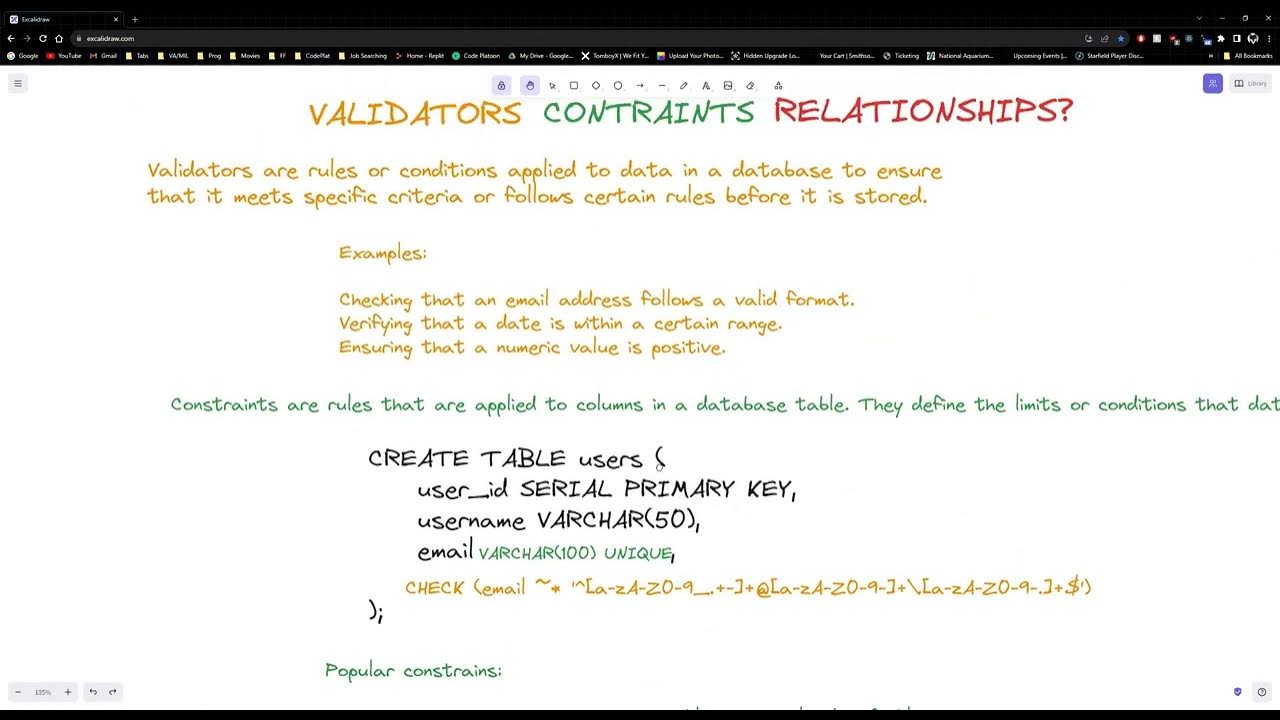 Excalidraw
excalidraw.com
Google YouTube Gmail Tabs VA/MIL Prog Movies FF CodePlat Job Searching Home - Replit Code Platoon My Drive - Google... TomboyX | We Fit Y... Upload Your Photo... Hidden Upgrade Lo... Your Cart | Smithso... Ticketing National Aquarium... Upcoming Events |... Starfield Player Disc... All Bookmarks
Library
VALIDATORS CONTRAINTS RELATIONSHIPS?
Validators are rules or conditions applied to data in a database to ensure
that it meets specific criteria or follows certain rules before it is stored.
Examples:
Checking that an email address follows a valid format.
Verifying that a date is within a certain range.
Ensuring that a numeric value is positive.
Constraints are rules that are applied to columns in a database table. They define the limits or conditions that dat
CREATE TABLE users (
user_id SERIAL PRIMARY KEY,
username VARCHAR(50),
email VARCHAR(100) UNIQUE,
CHECK (email ~* '^[a-zA-Z0-9_.+-]+@[a-zA-Z0-9-]+\.[a-zA-Z0-9-.]+$')
);
Popular constrains:
135%